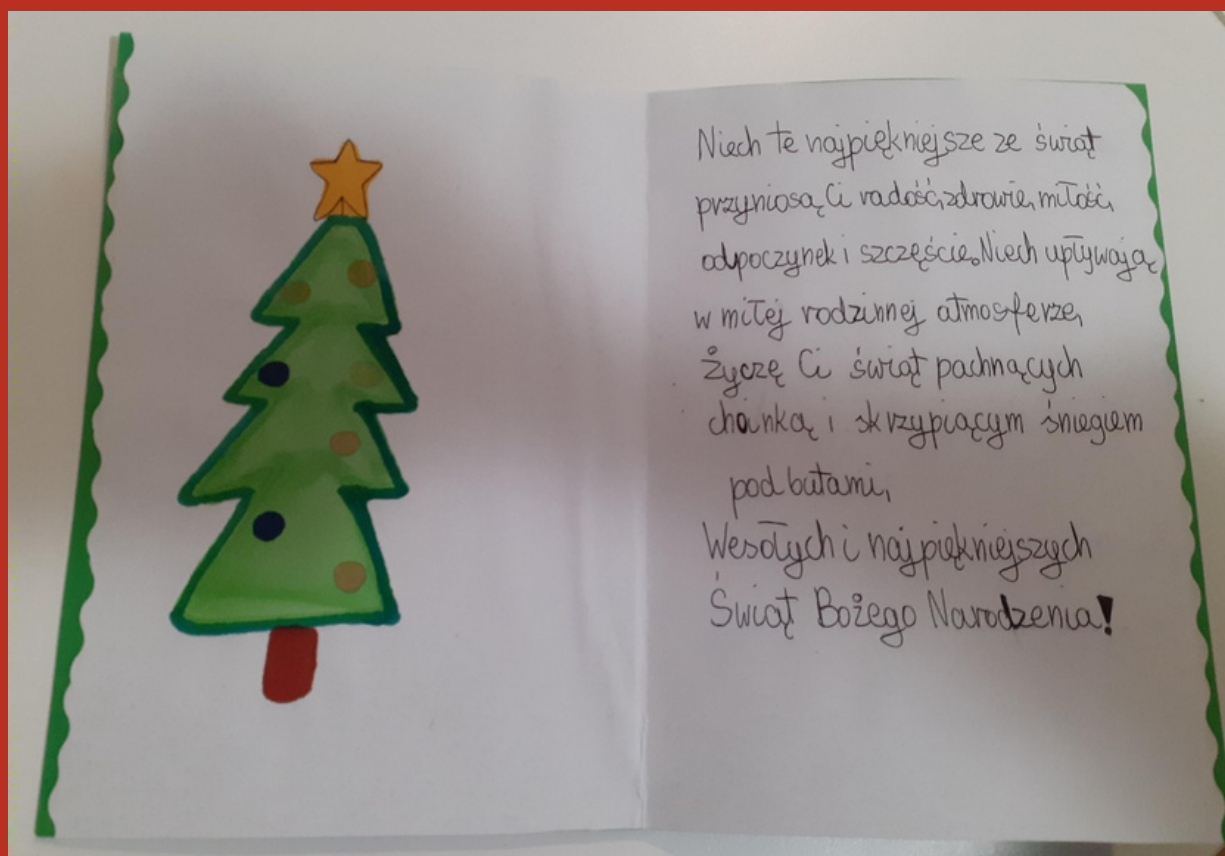 Niech te najpiękniejsze ze świąt
przyniosą Ci radość, zdrowie, miłość,
odpoczynek i szczęście. Niech upływają
w miłej rodzinnej atmosferze,
życzę Ci świąt pachnących
choinką i skrzypiącym śniegiem
pod butami,
Wesołych i najpiękniejszych
Świąt Bożego Narodzenia!